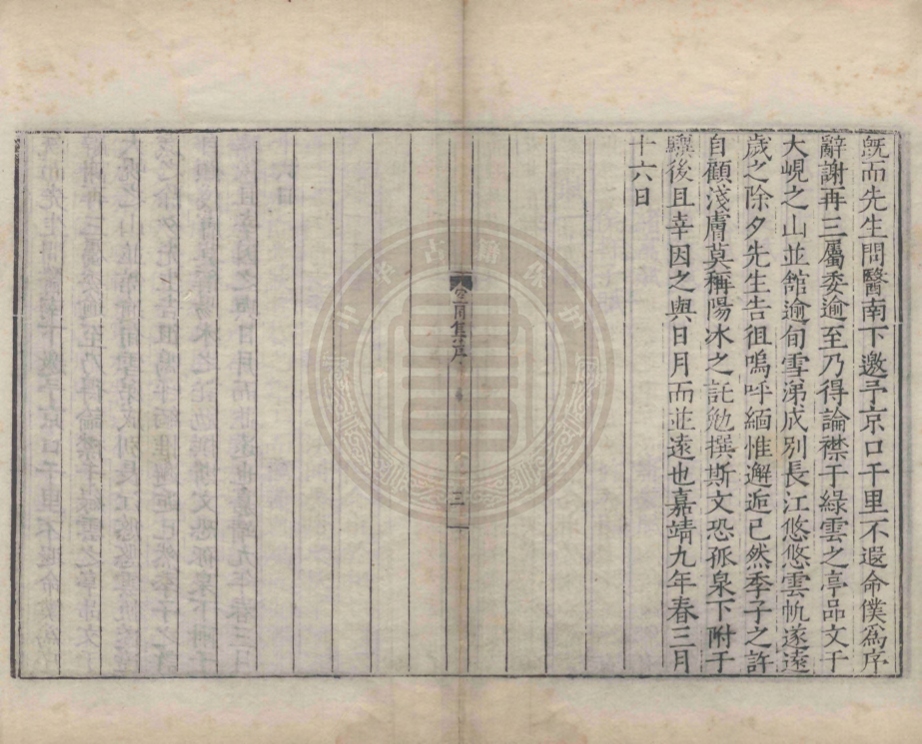 旣而先生問醫南下邀予京口千里不遐命僕爲序
辭謝再三屬委逾至乃得論襟于綠雲之亭品文于
大峴之山並館逾旬雪涕成別長江悠悠雲帆遂遠
歲之除夕先生告徂嗚呼緬惟邂逅已然季子之許
自顧淺膚莫稱陽冰之託勉撰斯文恐孤泉下附于
驥後且幸因之與日月而並遠也嘉靖九年春三月
十六日
空同集序
三